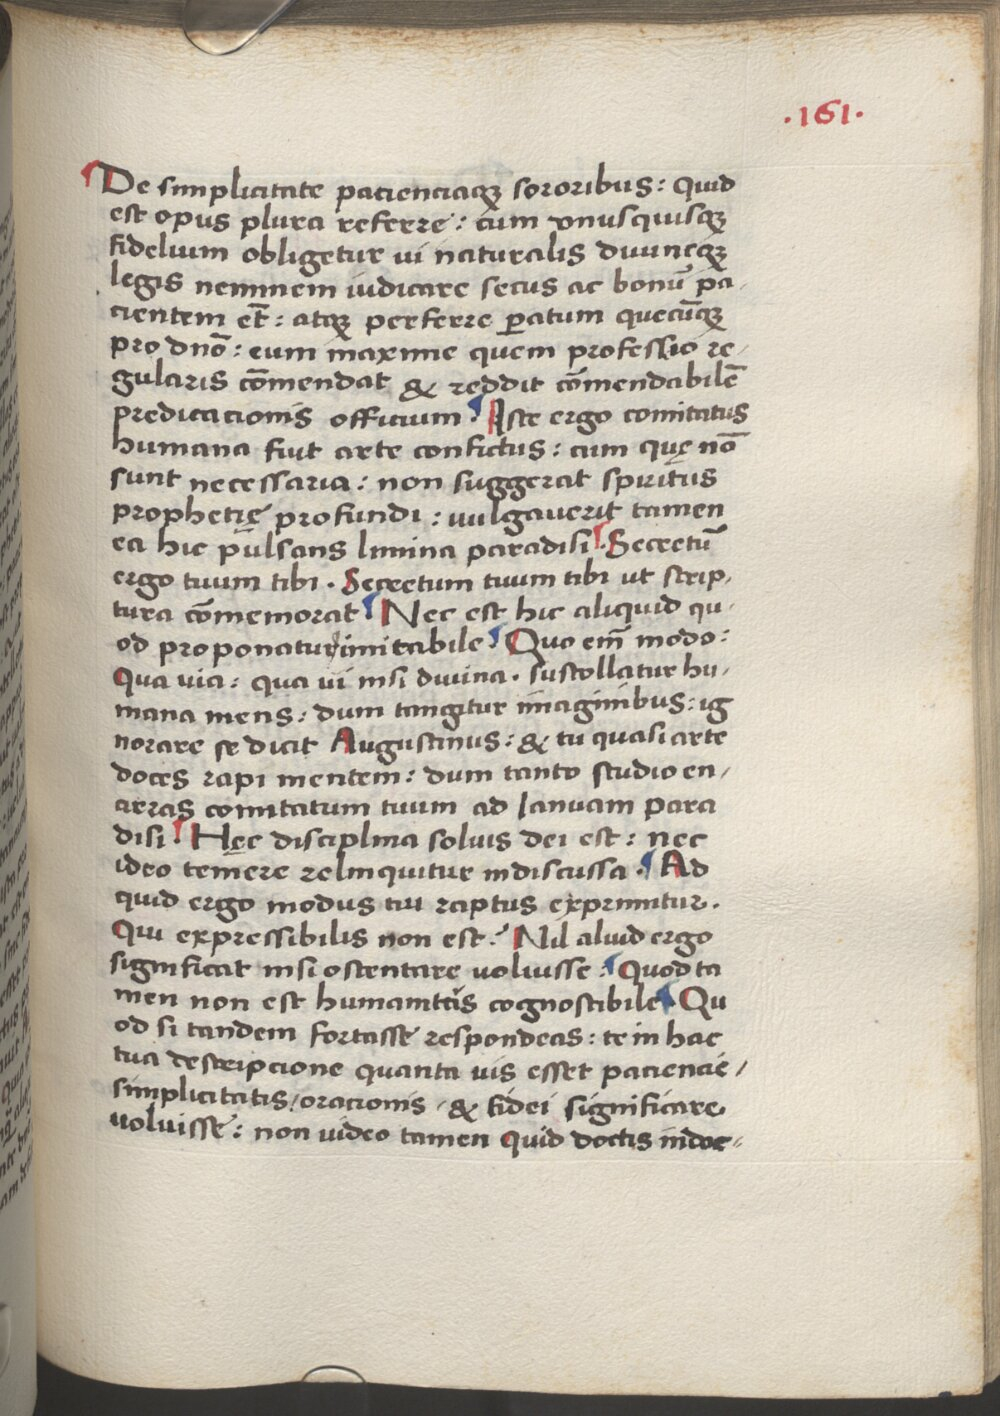 ·161·
De simplicitate pacienciaqꝫ sororibus: Quid
est opus plura referre: cum vnusquisqꝫ
fidelium obligetur ui naturalis diuineqꝫ
legis neminem iudicare secus ac bonū pa-
cientem eē: atqꝫ perferre ꝑatum quecūqꝫ
pro dnō: eum maxime quem professio re-
gularis cōmendat & reddit cōmendabilē
predicacionis officium. Iste ergo comitatus
humana fiut arte confictus: cum quę nō
sunt necessaria: non suggerat spiritus
prophetię profundi: uulgauerit tamen
ea hic pulsans limina paradisi. Secretū
ergo tuum tibi. Secretum tuum tibi ut scrip-
tura cōmemorat. Nec est hic aliquid qu-
od proponatur imitabile. Quo em̄ modo:
Qua uia: qua ui nisi diuina. sustollatur hu-
mana mens: dum tangitur imaginibus: ig
norare se dicit Augustinus: & tu quasi arte
doces rapi mentem: dum tanto studio en-
arras comitatum tuum ad Ianuam para
disi. Hęc disciplina soluis dei est: nec
ideo temere relinquitur indiscussa. Ad
quid ergo modus tui raptus exprimitur.
Qui expressibilis non est. Nil aliud ergo
significat nisi ostentare uoluisse: Quod ta
men non est humanitatis cognoscibile. Qu
od si tandem fortasse respondeas: te in hac
tua descripcione quanta uis esset paciencie/
simplicitatis/oracionis & fidei significare
uoluisse: non uideo tamen quid doctis indoc-